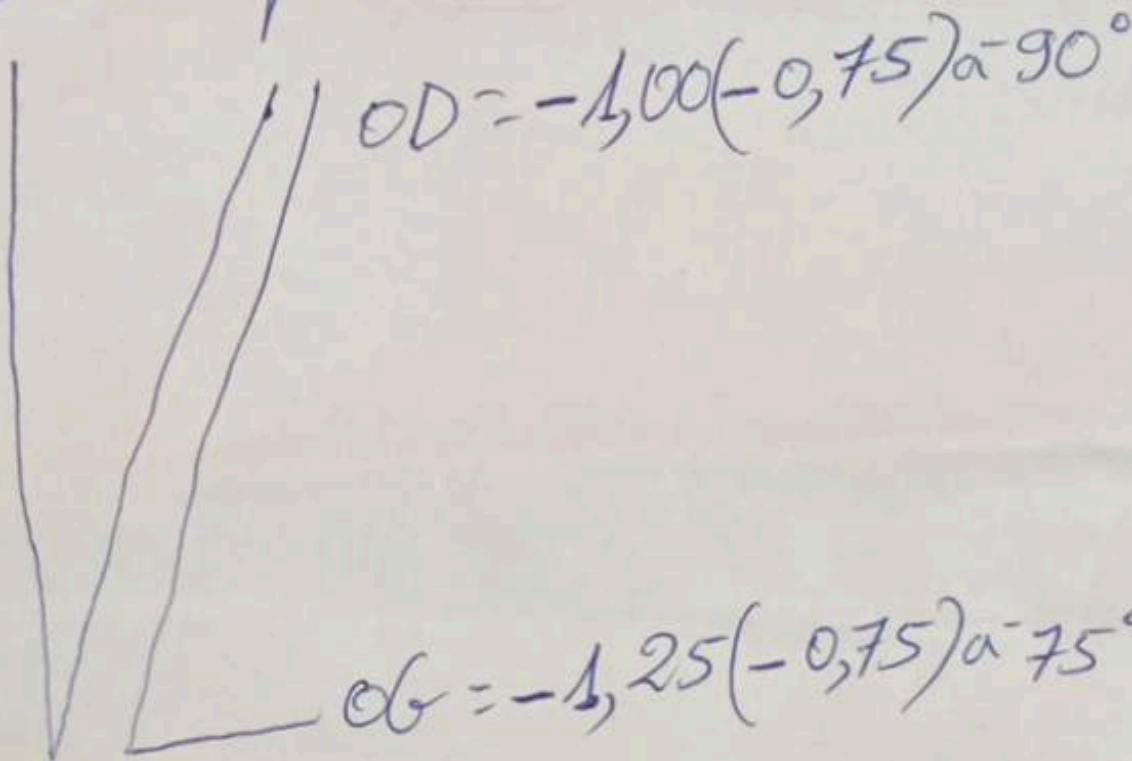 VL
OD = -1,00(-0,75)à 90°
OG = -1,25(-0,75)à 75°